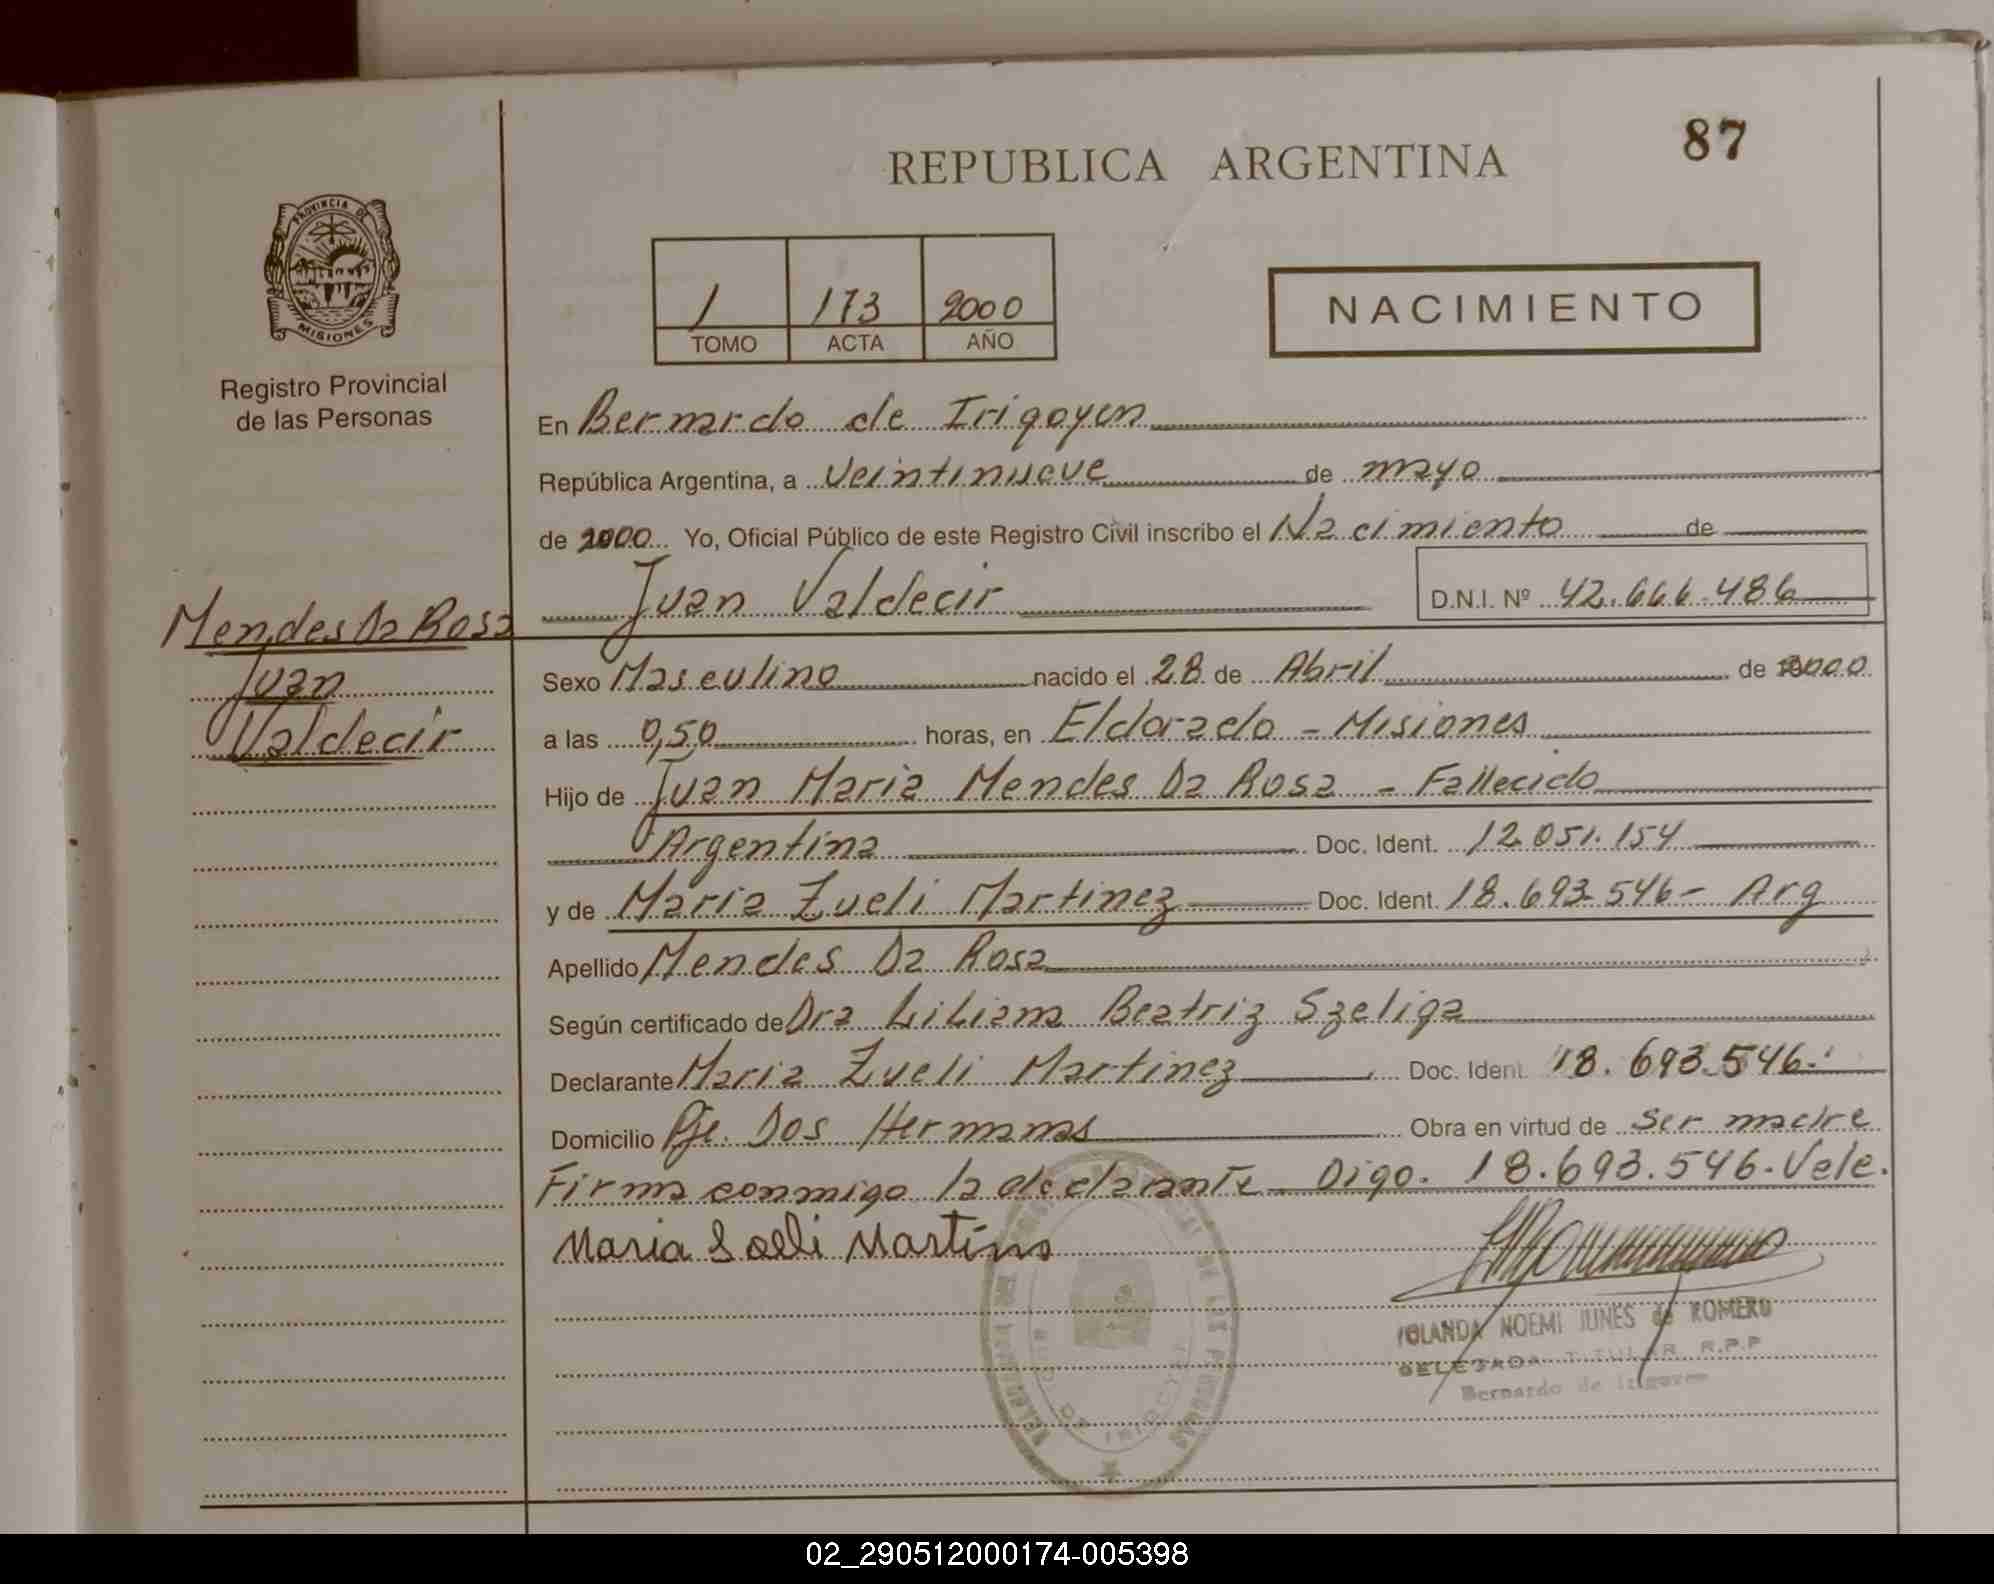 87
REPUBLICA ARGENTINA
PROVINCIA DE
MISIONES
Registro Provincial
de las Personas
1 173 2000
TOMO ACTA AÑO
NACIMIENTO
En Bernardo de Irigoyen
República Argentina, a Veintinueve de mayo
de 2000 Yo, Oficial Público de este Registro Civil inscribo el Nacimiento de
Juan Valdecir D.N.I. Nº 42.666.486
Mendes Da Rosa
Juan
Valdecir
Sexo Masculino nacido el 28 de Abril de 2000
a las 0,50 horas, en Eldorado - Misiones
Hijo de Juan Maria Mendes Da Rosa - Fallecido
Argentina Doc. Ident. 12.051.154
y de Maria Zueli Martinez Doc. Ident. 18.693.546 - Arg
Apellido Mendes Da Rosa
Según certificado de Dra Liliana Beatriz Szeliga
Declarante Maria Zueli Martinez Doc. Ident. 18.693.546.
Domicilio Pje. Dos Hermanas Obra en virtud de Ser madre
Firma conmigo la declarante Digo. 18.693.546. Vele.
Maria Martins
YOLANDA NOEMI JUNES de ROMERO
DELEGADA TITULAR R.P.P
Bernardo de Irigoyen
02_290512000174-005398